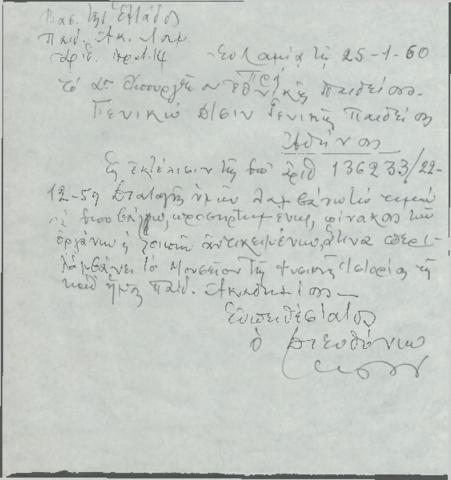 Βασ. της Ελλάδος
Παιδ. Ακ. Λαμ.
Αριθ. Πρωτ. 14
Εν Λαμία τη 25-1-60
Πρός
Το Υπουργείον Εθνικής Παιδείας
Γενικήν Δ/σιν Γενικής Παιδείας
Αθήνας
Εις εκτέλεσιν της υπ' αριθ 136233/22-
12-59 διαταγής υμών λαμβάνω την τιμήν
να υποβάλω, προσηρτημένως, πίνακας των
οργάνων, λοιπών αντικειμένων, άτινα περι-
λαμβάνει το Μουσείον της Φυσικής Ιστορίας της
καθ' ημάς Παιδ. Ακαδημίας
Ευπειθέστατος
ο Διευθύνων